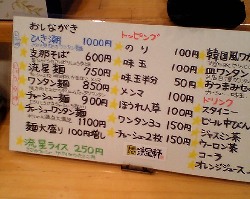 おしながき
1000円
支那そば 600円
流星麺 750円
ワンタン麺 850円
チャーシュー麺 900円
チャーシューワンタン麺 1100円
麺大盛り 100円増し
流星ライス 250円
トッピング
のり 100円
味玉 100円
味玉半分 50円
メンマ 100円
ほうれん草 100円
ワンタン3コ 150円
チャーシュー2枚 150円
流星軒
韓国風
皿ワンタン
おつまみ
ドリンク
スタイニー
ビール中び
ジャスミン茶
ウーロン茶
コーラ
オレンジジュース